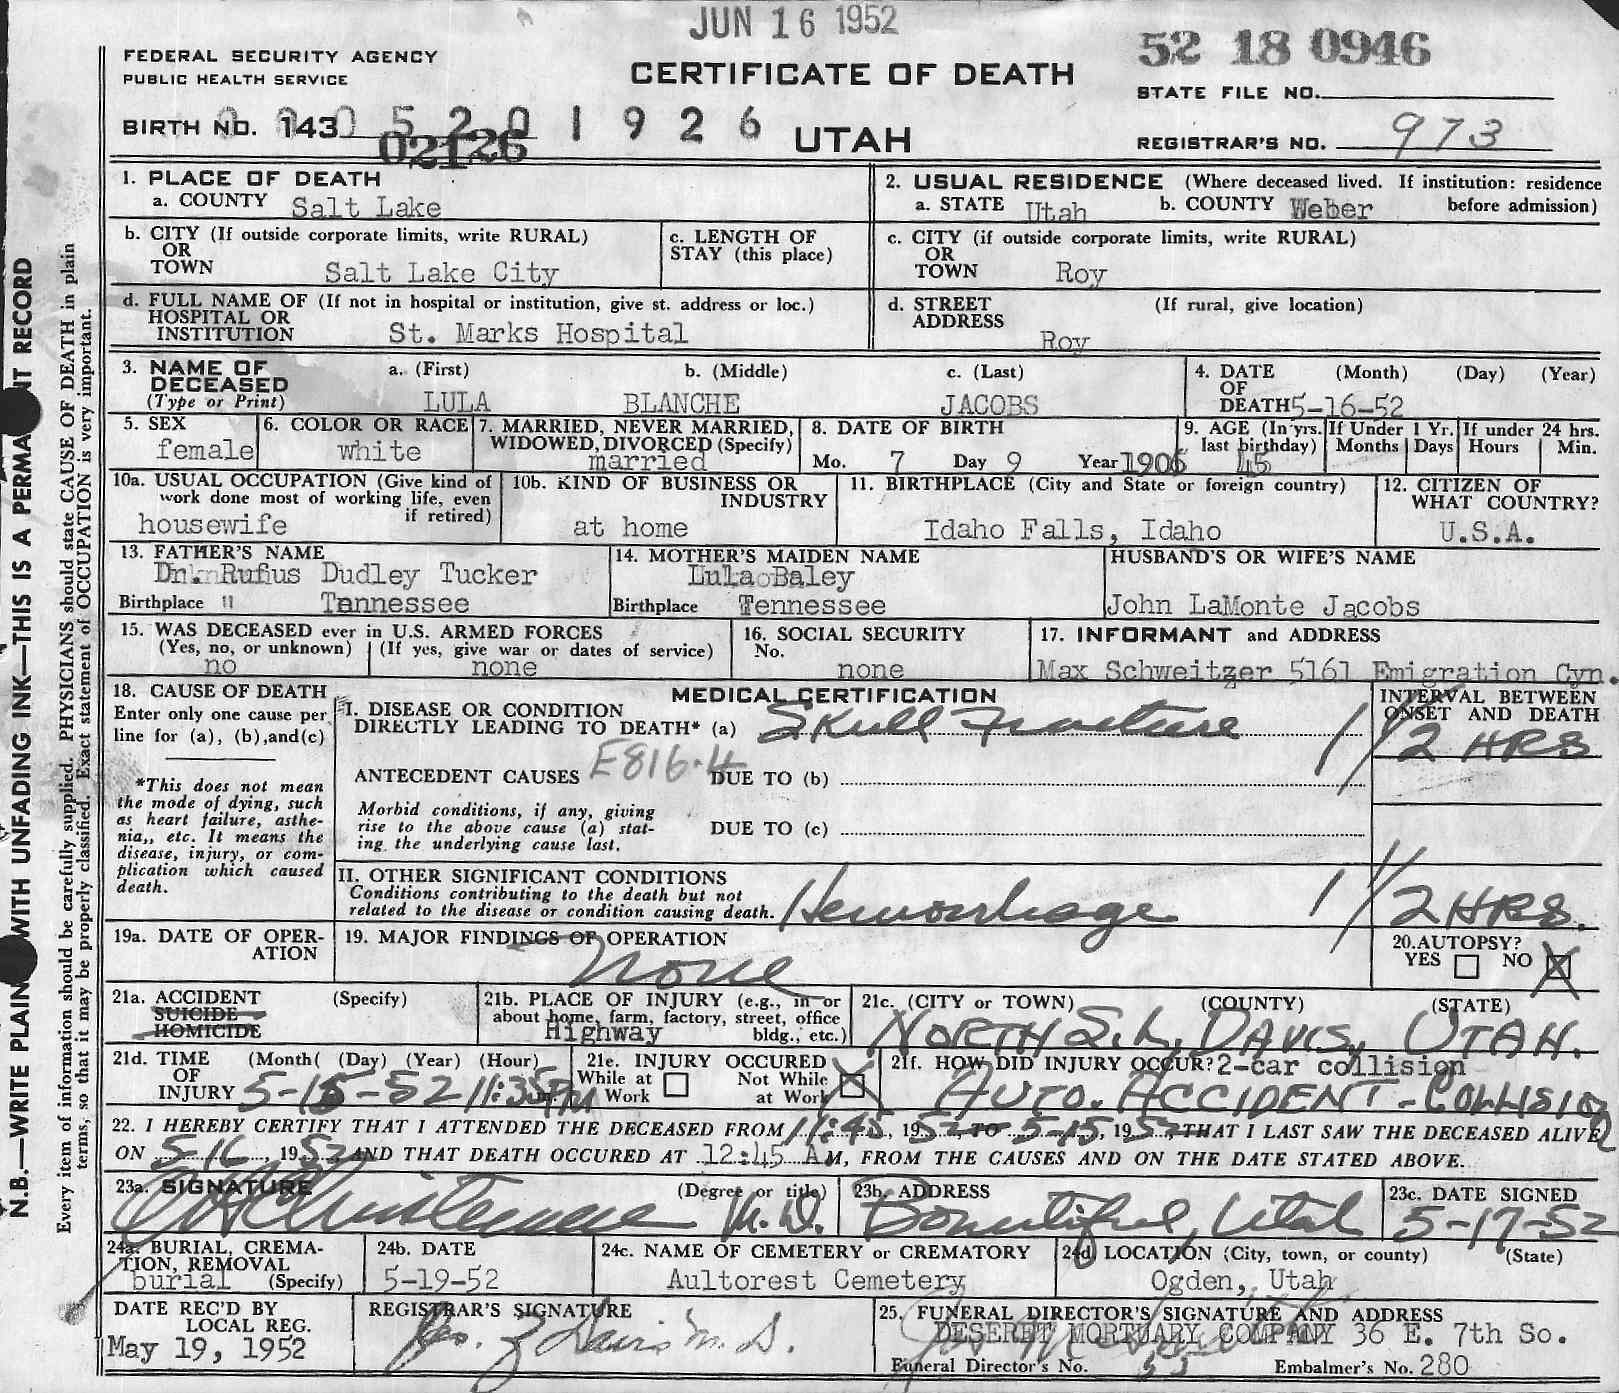 JUN 16 1952
FEDERAL SECURITY AGENCY
PUBLIC HEALTH SERVICE
CERTIFICATE OF DEATH
52 18 0946
STATE FILE NO.
BIRTH NO. 143 5 2 0 1 9 2 6
02126
UTAH
REGISTRAR'S NO. 973
1. PLACE OF DEATH
a. COUNTY Salt Lake
2. USUAL RESIDENCE (Where deceased lived. If institution: residence before admission)
a. STATE Utah b. COUNTY Weber
b. CITY (If outside corporate limits, write RURAL)
OR
TOWN Salt Lake City
c. LENGTH OF
STAY (this place)
c. CITY (if outside corporate limits, write RURAL)
OR
TOWN Roy
d. FULL NAME OF (If not in hospital or institution, give st. address or loc.)
HOSPITAL OR
INSTITUTION St. Marks Hospital
d. STREET (If rural, give location)
ADDRESS
Roy
3. NAME OF
DECEASED
(Type or Print)
a. (First) b. (Middle) c. (Last)
LULA BLANCHE JACOBS
4. DATE (Month) (Day) (Year)
OF
DEATH 5-16-52
5. SEX
female
6. COLOR OR RACE
white
7. MARRIED, NEVER MARRIED,
WIDOWED, DIVORCED (Specify)
married
8. DATE OF BIRTH
Mo. 7 Day 9 Year 1906
9. AGE (In yrs.
last birthday)
45
If Under 1 Yr.
Months Days
If under 24 hrs.
Hours Min.
10a. USUAL OCCUPATION (Give kind of
work done most of working life, even
if retired)
housewife
10b. KIND OF BUSINESS OR
INDUSTRY
at home
11. BIRTHPLACE (City and State or foreign country)
Idaho Falls, Idaho
12. CITIZEN OF
WHAT COUNTRY?
U.S.A.
13. FATHER'S NAME
Rufus Dudley Tucker
Birthplace Tennessee
14. MOTHER'S MAIDEN NAME
Lula Baley
Birthplace Tennessee
HUSBAND'S OR WIFE'S NAME
John LaMonte Jacobs
15. WAS DECEASED ever in U.S. ARMED FORCES
(Yes, no, or unknown) (If yes, give war or dates of service)
no none
16. SOCIAL SECURITY
No.
none
17. INFORMANT and ADDRESS
Max Schweitzer 5161 Emigration Cyn.
18. CAUSE OF DEATH
Enter only one cause per
line for (a), (b), and(c)
*This does not mean
the mode of dying, such
as heart failure, asthe-
nia,, etc. It means the
disease, injury, or com-
plication which caused
death.
MEDICAL CERTIFICATION
I. DISEASE OR CONDITION
DIRECTLY LEADING TO DEATH* (a) Skull Fracture
INTERVAL BETWEEN
ONSET AND DEATH
1 1/2 HRS
ANTECEDENT CAUSES E816.4 DUE TO (b)
Morbid conditions, if any, giving
rise to the above cause (a) stat-
ing the underlying cause last.
DUE TO (c)
II. OTHER SIGNIFICANT CONDITIONS
Conditions contributing to the death but not
related to the disease or condition causing death. Hemorrhage 1 1/2 HRS.
19a. DATE OF OPER-
ATION
19. MAJOR FINDINGS OF OPERATION
None
20. AUTOPSY?
YES NO
21a. ACCIDENT (Specify)
SUICIDE
HOMICIDE
21b. PLACE OF INJURY (e.g., in or
about home, farm, factory, street, office
bldg., etc.)
Highway
21c. (CITY or TOWN) (COUNTY) (STATE)
NORTH S.L. DAVIS, UTAH.
21d. TIME (Month( (Day) (Year) (Hour)
OF
INJURY 5-15-52 11:35 PM
21e. INJURY OCCURED
While at Work Not While at Work
21f. HOW DID INJURY OCCUR? 2-car collision
AUTO. ACCIDENT - COLLISION
22. I HEREBY CERTIFY THAT I ATTENDED THE DECEASED FROM 11:45, 1952, TO 5-15, 1952, THAT I LAST SAW THE DECEASED ALIVE
ON 5-16, 1952 AND THAT DEATH OCCURED AT 12:45 A M, FROM THE CAUSES AND ON THE DATE STATED ABOVE.
23a. SIGNATURE (Degree or title)
M.D.
23b. ADDRESS
Bountiful, Utah
23c. DATE SIGNED
5-17-52
24a. BURIAL, CREMA-
TION, REMOVAL
burial (Specify)
24b. DATE
5-19-52
24c. NAME OF CEMETERY or CREMATORY
Aultorest Cemetery
24d. LOCATION (City, town, or county) (State)
Ogden, Utah
DATE REC'D BY
LOCAL REG.
May 19, 1952
REGISTRAR'S SIGNATURE
Davis M.D.
25. FUNERAL DIRECTOR'S SIGNATURE AND ADDRESS
DESERET MORTUARY COMPANY 36 E. 7th So.
Funeral Director's No. Embalmer's No. 280
N.B.—WRITE PLAIN WITH UNFADING INK—THIS IS A PERMA NT RECORD
Every item of information should be carefully supplied. PHYSICIANS should state CAUSE OF DEATH in plain
terms, so that it may be properly classified. Exact statement of OCCUPATION is very important.